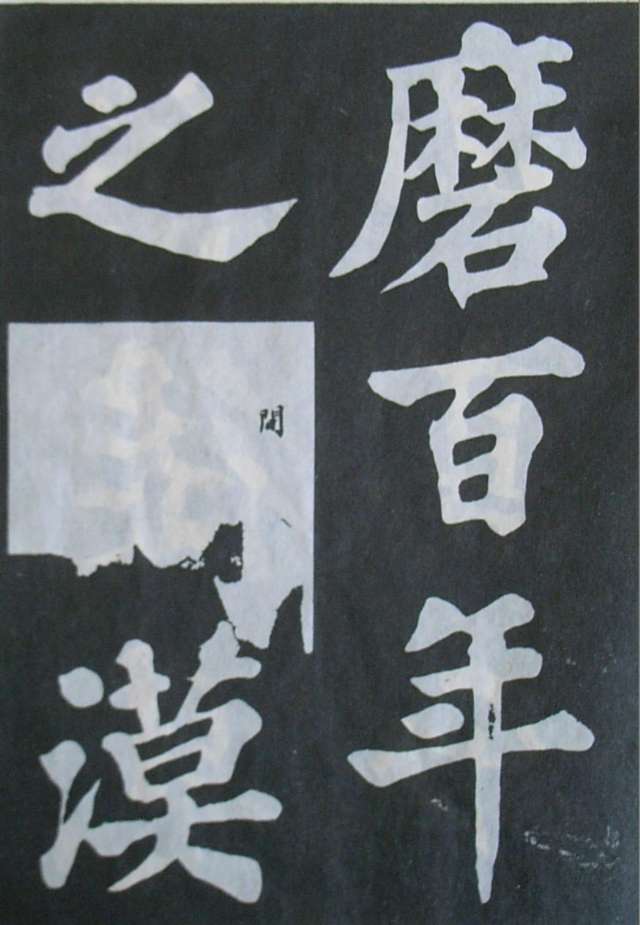 磨百年
之間漠